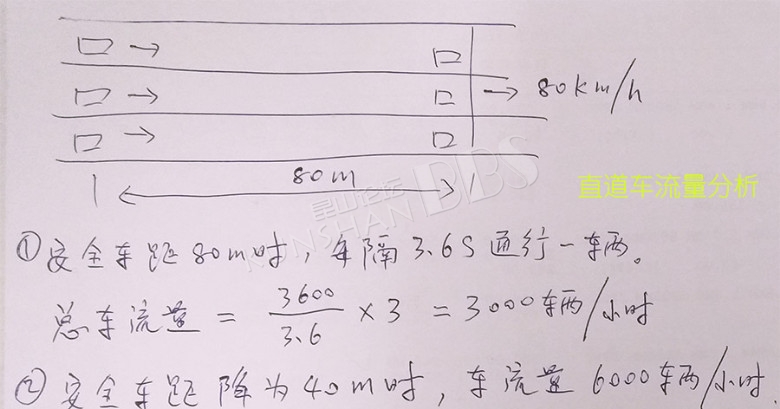 80km/h
80m
直道车流量分析
昆山论坛
KUNSHAN BBS
①安全车距80m时，每隔3.6S通行一车辆。
总车流量 = 3600/3.6 × 3 = 3000车辆/小时
②安全车距降为40m时，车流量6000车辆/小时.